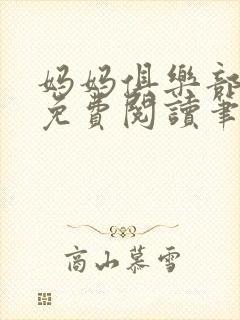 妈妈俱樂部
免費閱讀筆
高山慕雪